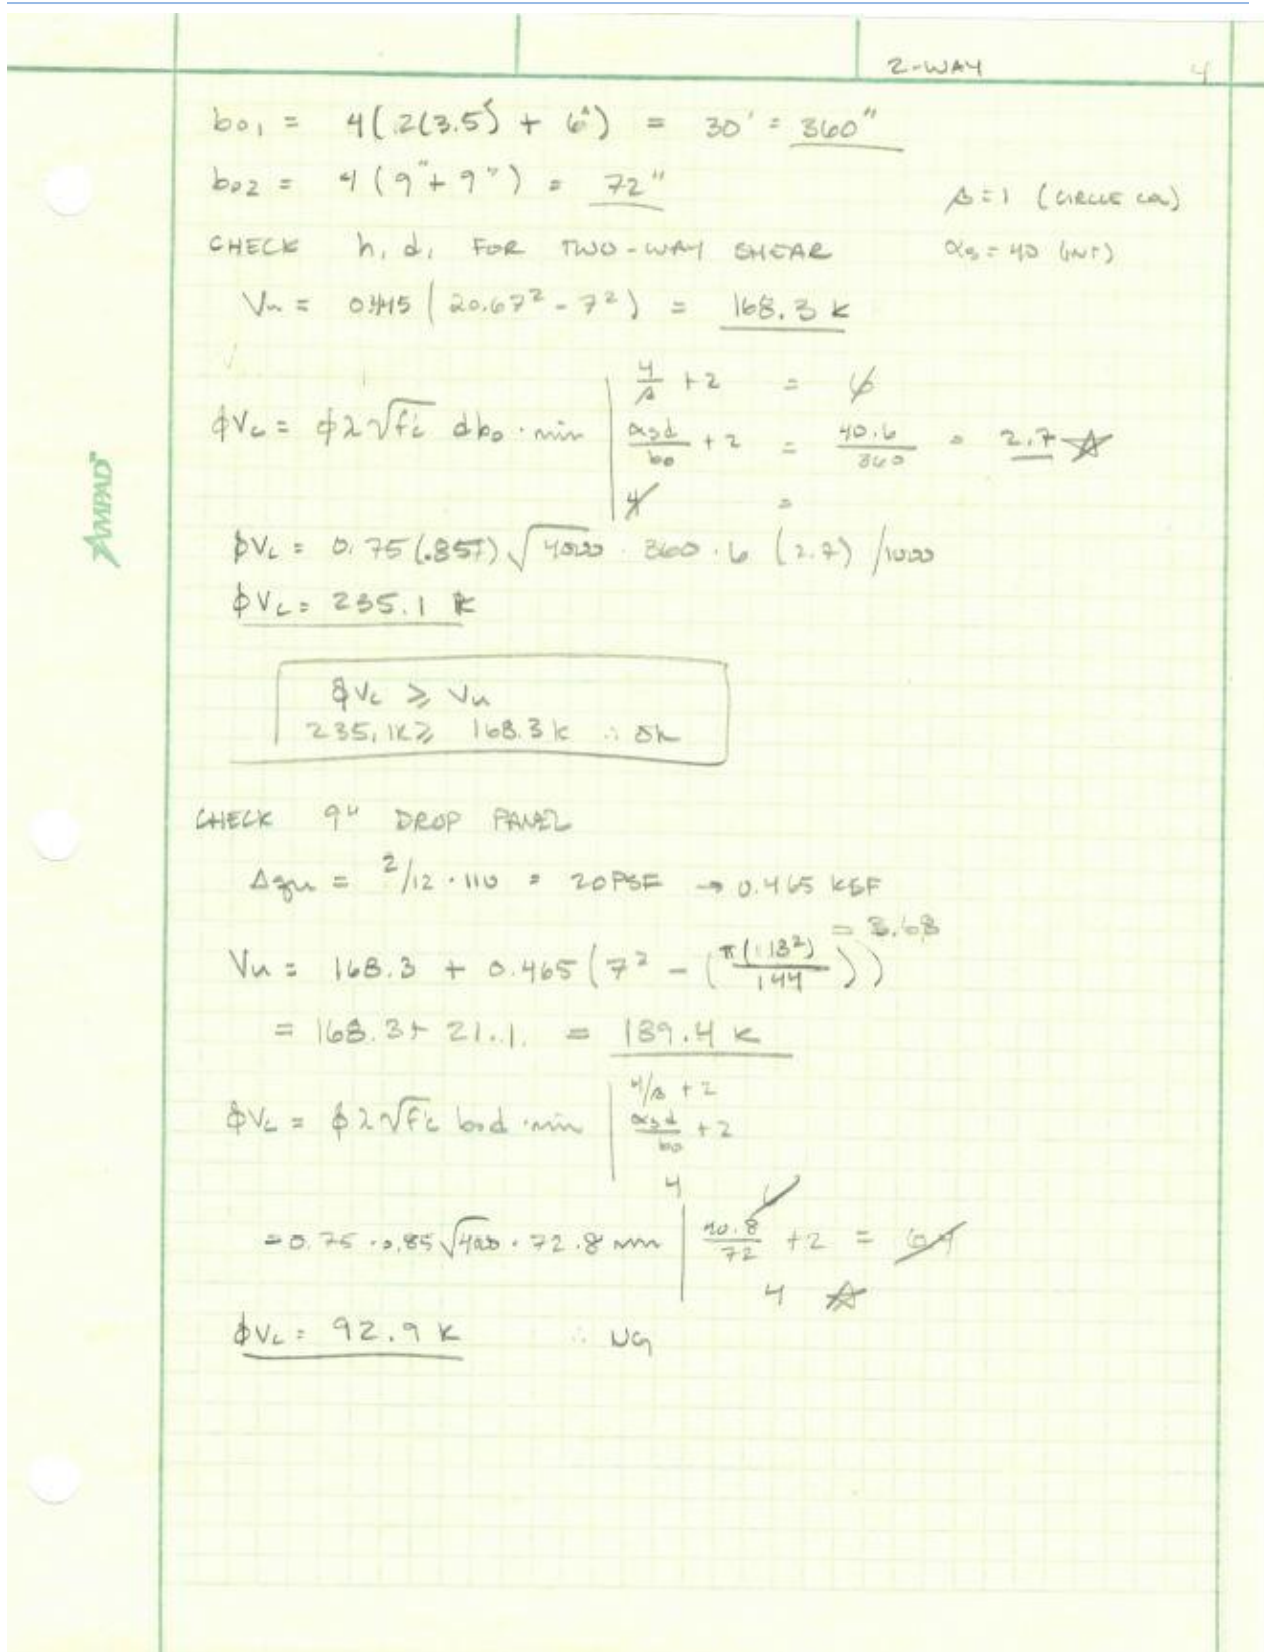 2-WAY 4
bo1 = 4(2(3.5') + 6") = 30' = 360"
bo2 = 4(9" + 9") = 72"
β = 1 (CIRCLE COL)
CHECK h, d, FOR TWO-WAY SHEAR
αs = 40 (INT)
Vu = 0.445 (20.67² - 7²) = 168.3 k
4/β + 2 = 6
ϕVc = ϕλ√f'c dbo · min αsd/bo + 2 = 40·6/360 = 2.7 ☆
4 =
AMPAD
ϕVc = 0.75(.85)√4000 · 360 · 6 (2.7) /1000
ϕVc = 235.1 k
ϕVc ≥ Vu
235.1k ≥ 168.3k ∴ OK
CHECK 9" DROP PANEL
Δqu = 2/12 · 110 = 20PSF → 0.465 KSF
= 3.68
Vu = 168.3 + 0.465(7² - (π(13²)/144))
= 168.3 + 21.1 = 189.4 k
4/β + 2
ϕVc = ϕλ√f'c bod · min αsd/bo + 2
4
6
= 0.75 · 0.85√4000 · 72 · 8 min 40·8/72 + 2 =
4 ☆
ϕVc = 92.9 k ∴ NG